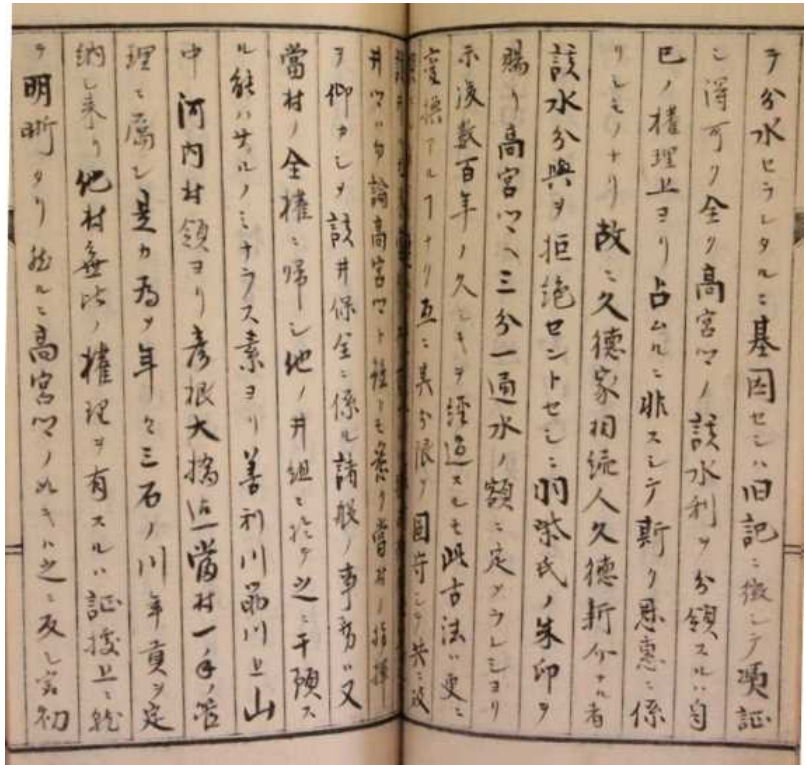 テ分水セラレタルニ基因セシハ旧記ニ徴シテ憑証
シ得可ク全ク高宮マノ該水利ヲ分領スルハ自
己ノ権理上ヨリ占ムルニ非スシテ斯ク恩恵ニ係
リシモノナリ故ニ久徳家相続人久徳新介ナル者
該水分與ヲ拒絶セントセシニ羽柴氏ノ朱印ヲ
賜リ高宮マヘ三分一通水ノ額ニ定メラレシヨリ
示後数百年ノ久シキヲ経過スルモ此古法ハ更ニ
変換アルヿナク互ニ其分限ヲ固守シテ共ニ
井マハ勿論高宮マト雖トモ悉ク當村ノ指揮
ヲ仰カシメ該井保全ニ係ル諸般ノ事務ハ又
當村ノ全権ニ帰シ他ノ井組ニ於テ之ニ干預ス
ル能ハサルノミナラス素ヨリ善利川筋川上山
中河内村領ヨリ彦根大橋迠當村一手ノ管
理ニ属シ是カ為メ年々三石ノ川年貢ヲ定
納シ来リ他村無比ノ権理ヲ有スルハ証拠上ニ就
テ明晰タリ然ルニ高宮マノ如キハ之ニ反シ当初